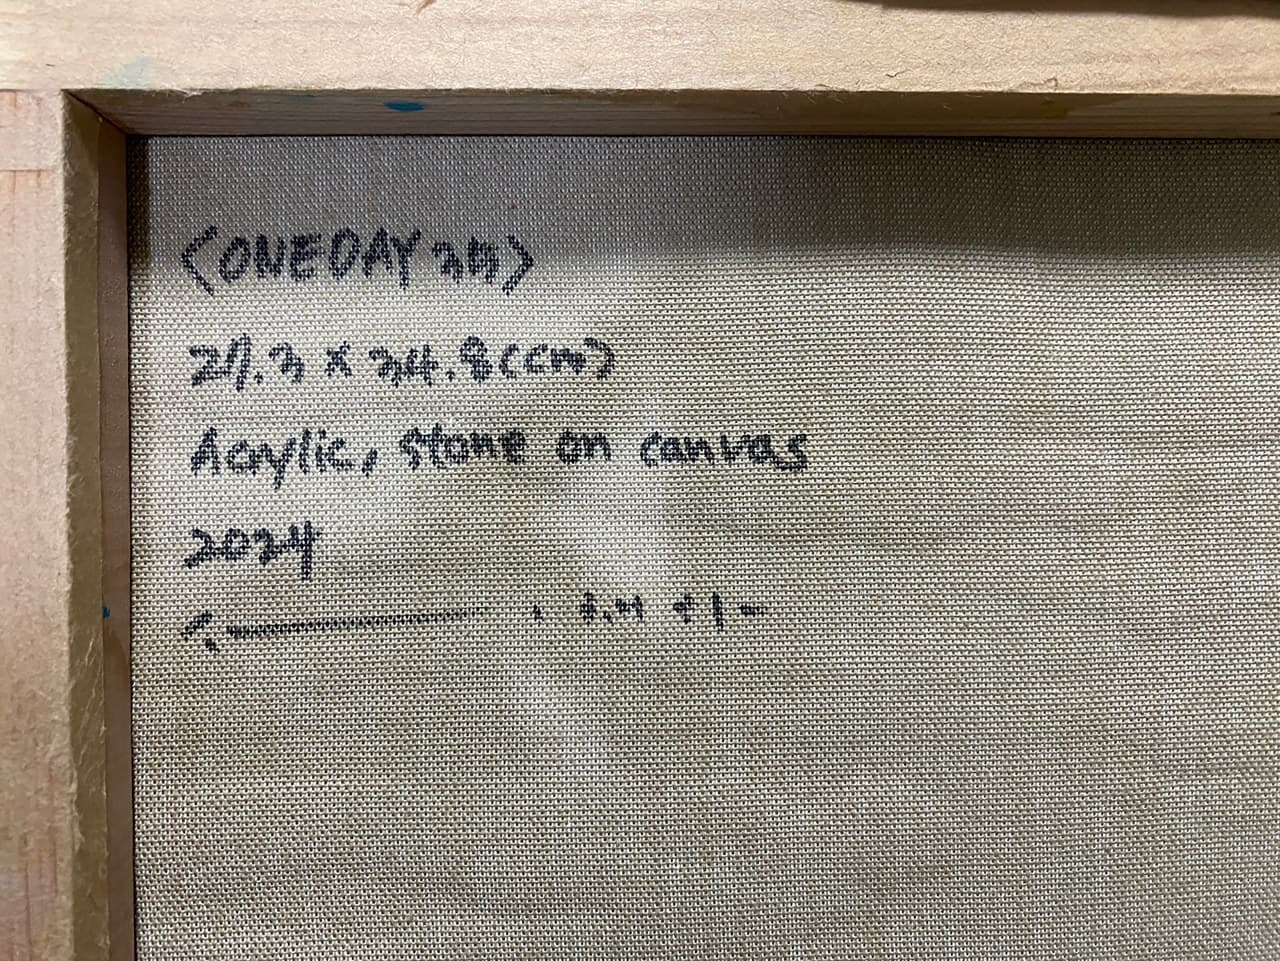 <ONEDAY 35>
27.3 x 34.8(cm)
Acrylic, stone on canvas
2024